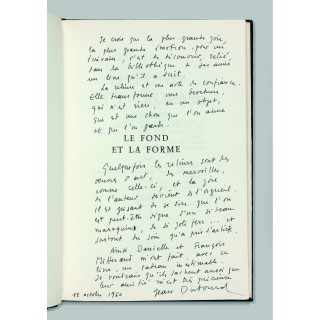 Je crois que la plus grande joie,
la plus grande émotion, pour un
écrivain, c'est de découvrir, relié,
dans la bibliothèque de ses amis
un livre qu'il a écrit.
La reliure est un acte de confiance.
Elle transforme une brochure,
qui n'est rien, en un objet,
qui est une chose que l'on aime
et que l'on garde.
LE FOND
ET LA FORME
Quelquefois les reliures sont des
oeuvres d'art, des merveilles,
comme celle-ci, et la joie
de l'auteur devient de l'orgueil.
Il est grisant de se dire que l'on
est peut-être digne d'un si beau
maroquin, de si jolis fers ... et
surtout du soin qu'a pris l'artiste.
Ainsi Danielle et François
Mitterand m'ont fait, avec ce
livre, un cadeau inestimable.
Je voudrais qu'ils sachent aussi que
leur amitié m'est très précieuse
12 octobre 1960 Jean Dutourd